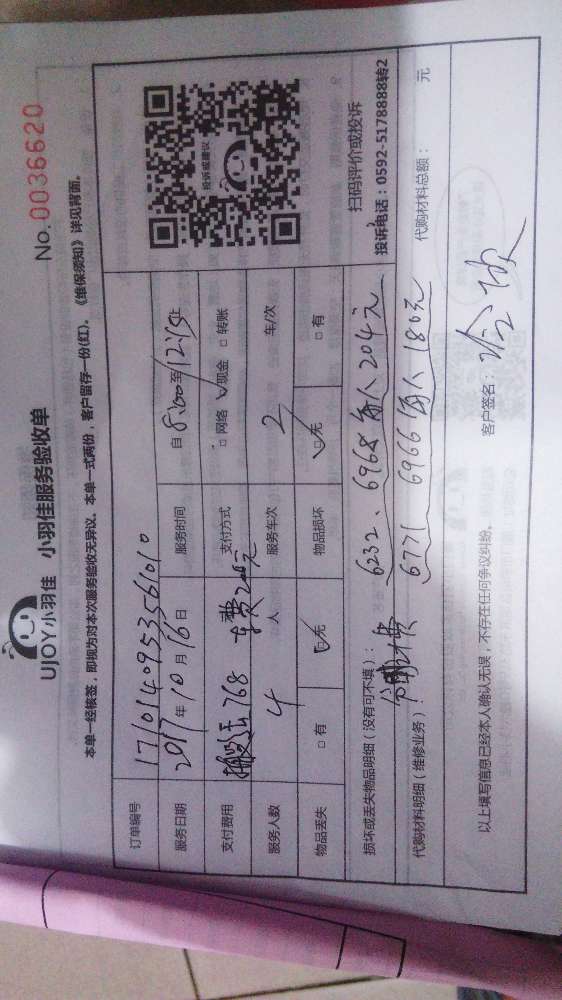 No. 0036620
UJOY小羽佳 小羽佳服务验收单
本单一经核签，即视为对本次服务验收无异议。本单一式两份，客户留存一份(红)。《维保须知》详见背面。
订单编号 171014095356101０
服务日期 2017年10月16日 服务时间 自8:00至12:15止
支付费用 搬运768 车费200元 支付方式 □网络 ☑现金 □转账
服务人数 4人 服务车次 2 车/次
物品丢失 □有 ☑无 物品损坏 ☑无 □有
投诉或建议
扫码评价或投诉
投诉电话：0592-5178888转2
损坏或丢失物品明细（没有可不填）： 6232、6968每人204元
代购材料明细（维修业务）： 6771 6966每人180元 代购材料总额： 元
以上填写信息已经本人确认无误，不存在任何争议纠纷。 客户签名：